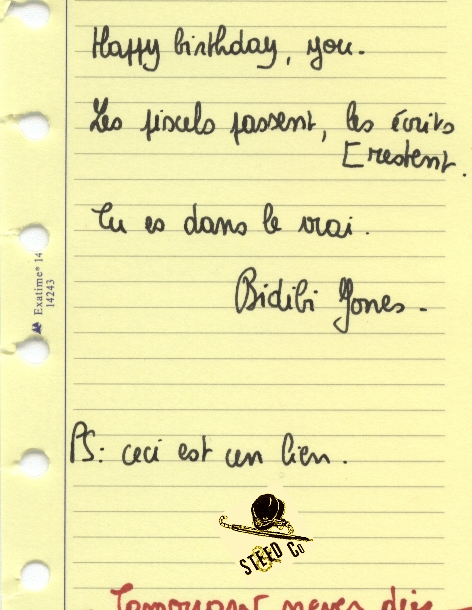 Happy birthday, you.
Les pixels passent, les écrits
[restent.
Tu es dans le vrai.
Bidibi Jones.
PS: ceci est un lien.
STEED Co
Exatime® 14
14243
Tomorrow never dies